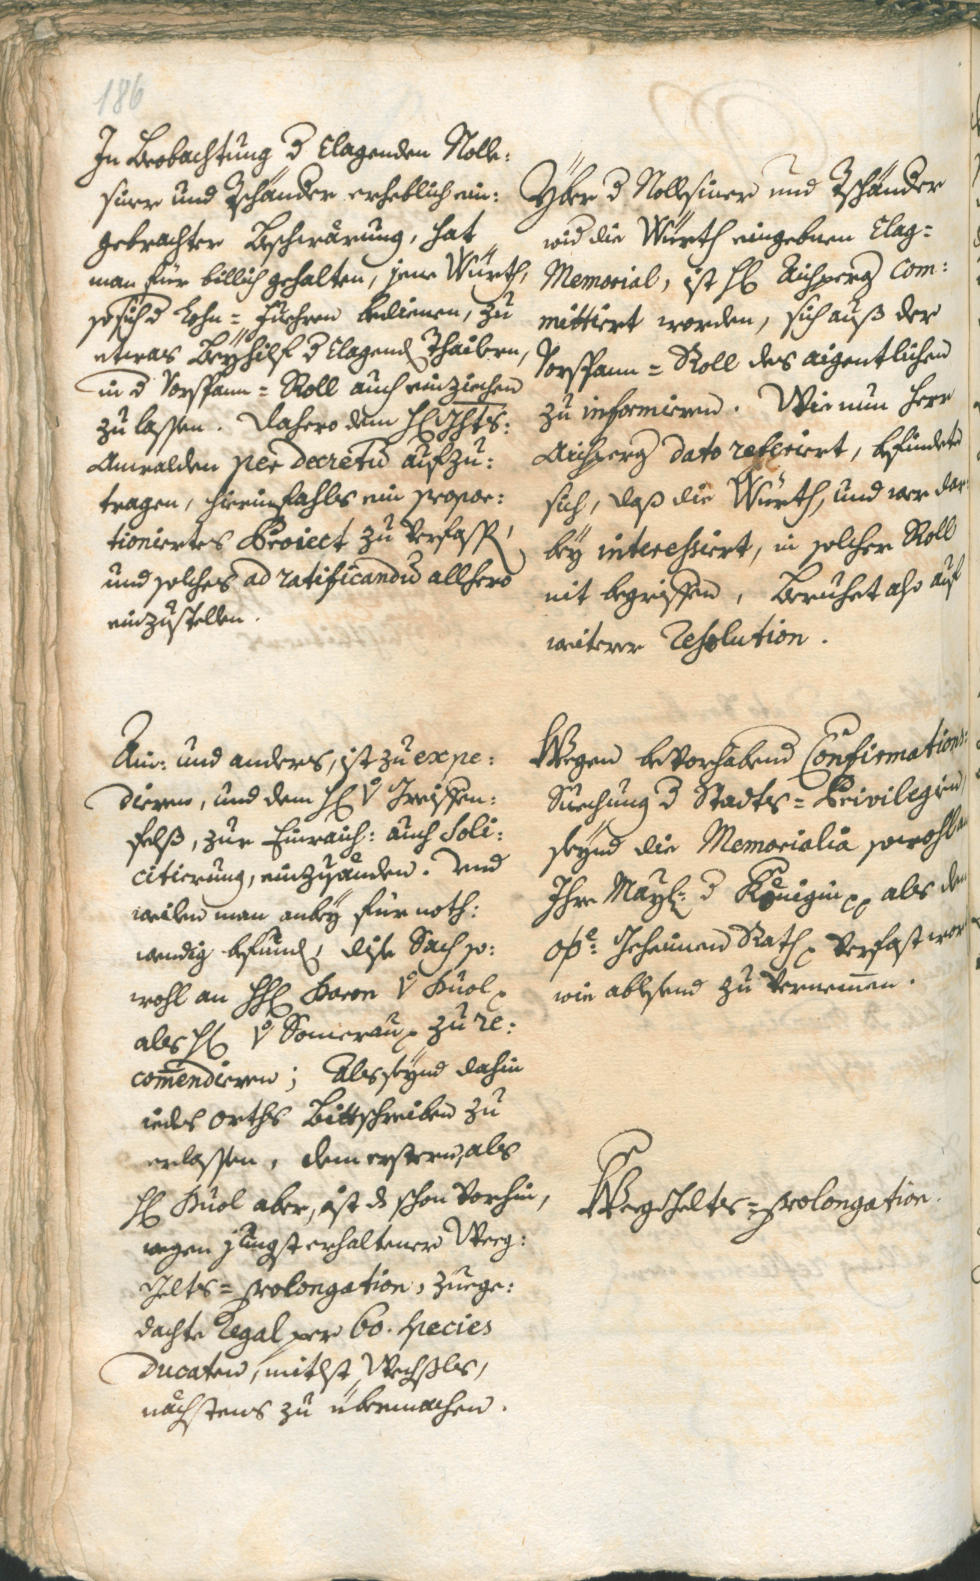 186
In Beobachtung d Clagenden Nolle-
siner und Tschander erheblich ein-
gebrachter Beschwärung, hat
man für billich gehalten, jene Würth,
so sich d Lohn-Fuehren bedienen, zu
etwas Beyhilf d Clagend Thailern,
in d Vorspann-Roll auch einziechen
zu lassen. Dahero dem H
Anwalden per decretu aufzu-
tragen, hierinfahls ein propor-
tioniertes Proiect zu verfassen,
und solches ad ratificandu allhero
einzustellen.
Yber d Nollesiner und Tschander
wid die Würth eingebnen Clag-
Memorial, ist H Aichperg com-
mittiert worden, sich auß der
Vorspann-Roll des aigentlichen
zu informieren. Wie nun Herr
Aichperg dato referiert, befindete
sich, daß die Würth, und wer dar-
bey interessiert, in solcher Roll
nit begriffen, Beruhet also auf
weiterer Resolution.
Ain- und anders, ist zu expe-
dieren, und dem H v Greissen-
felß, zur Einraich- auch Soli-
citierung, einzusänden. Und
weilen man anbey für noth-
wendig befund, dise Sach so-
wohl an HH Baron v Buol,
als H v Somerau zu re-
comendieren; Als seynd dahin
iedes Orths Bittschreiben zu
erlassen, dem erstern, als
H Buol aber, ist d schon vorhin,
wegen jüngst erhaltener Weeg-
Gelts-Prolongation, zuege-
dachte Regal per 60. Species
Ducaten, mitlst Wechsels,
nächstens zu übermachen.
Wegen bevorhabend Confirmations-
Suechung d Stadts-Privilegien,
seynd die Memorialia sowohl an
Ihre Mayt: d Königin als den
Geheimen Rath verfast wor
wie ablesend zu vernemen.
Weeg Gelts-Prolongation.